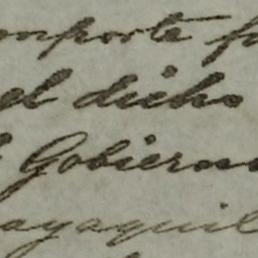 mporte
el dicho
Gobierno
ayaquil